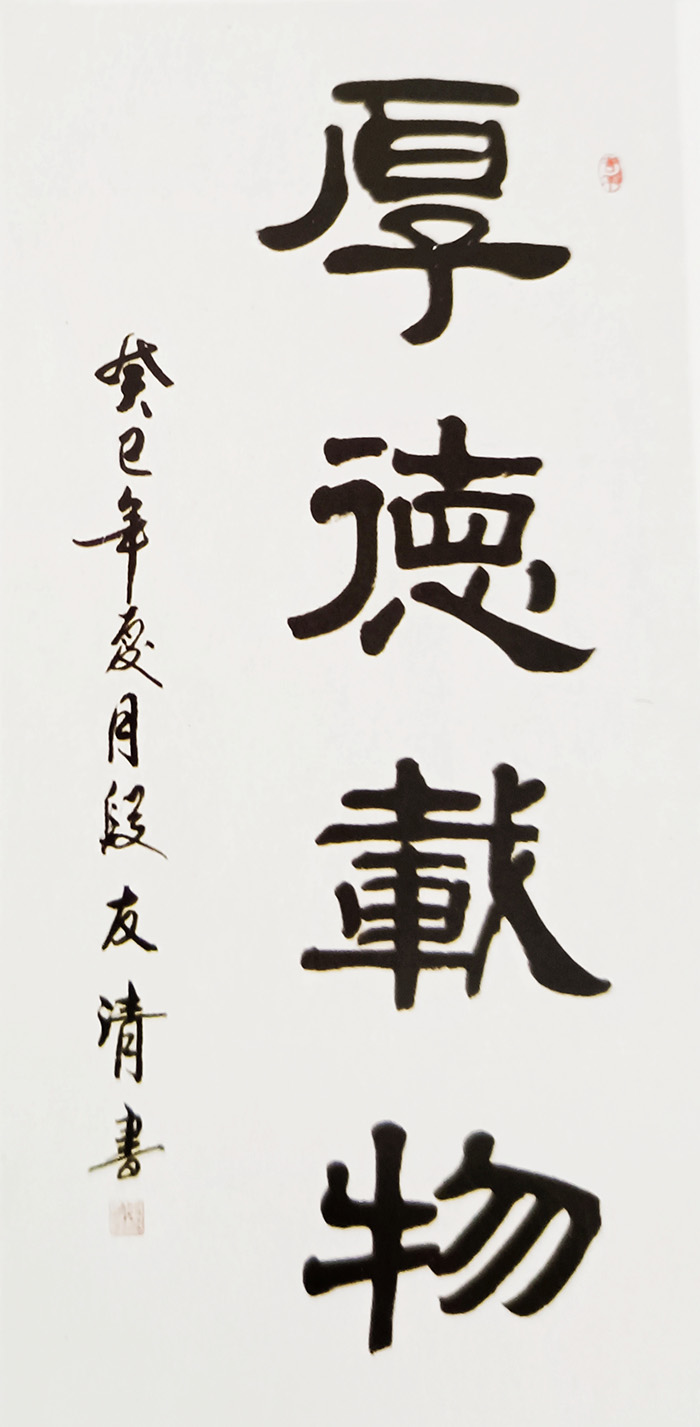 厚德載物
癸巳年夏月段友清書